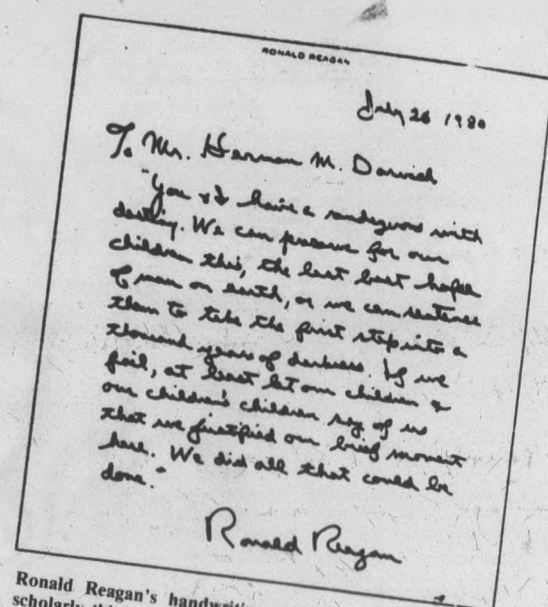 RONALD REAGAN
July 26 1980
To Mr. Herman M. Darvick
"You & I have a rendezvous with
destiny. We can preserve for our
children this, the last best hope
of man on earth, or we can sentence
them to take the first step into a
thousand years of darkness. If we
fail, at least let our children &
our children's children say of us
that we justified our brief moment
here. We did all that could be
done."
Ronald Reagan
Ronald Reagan's
scholarly